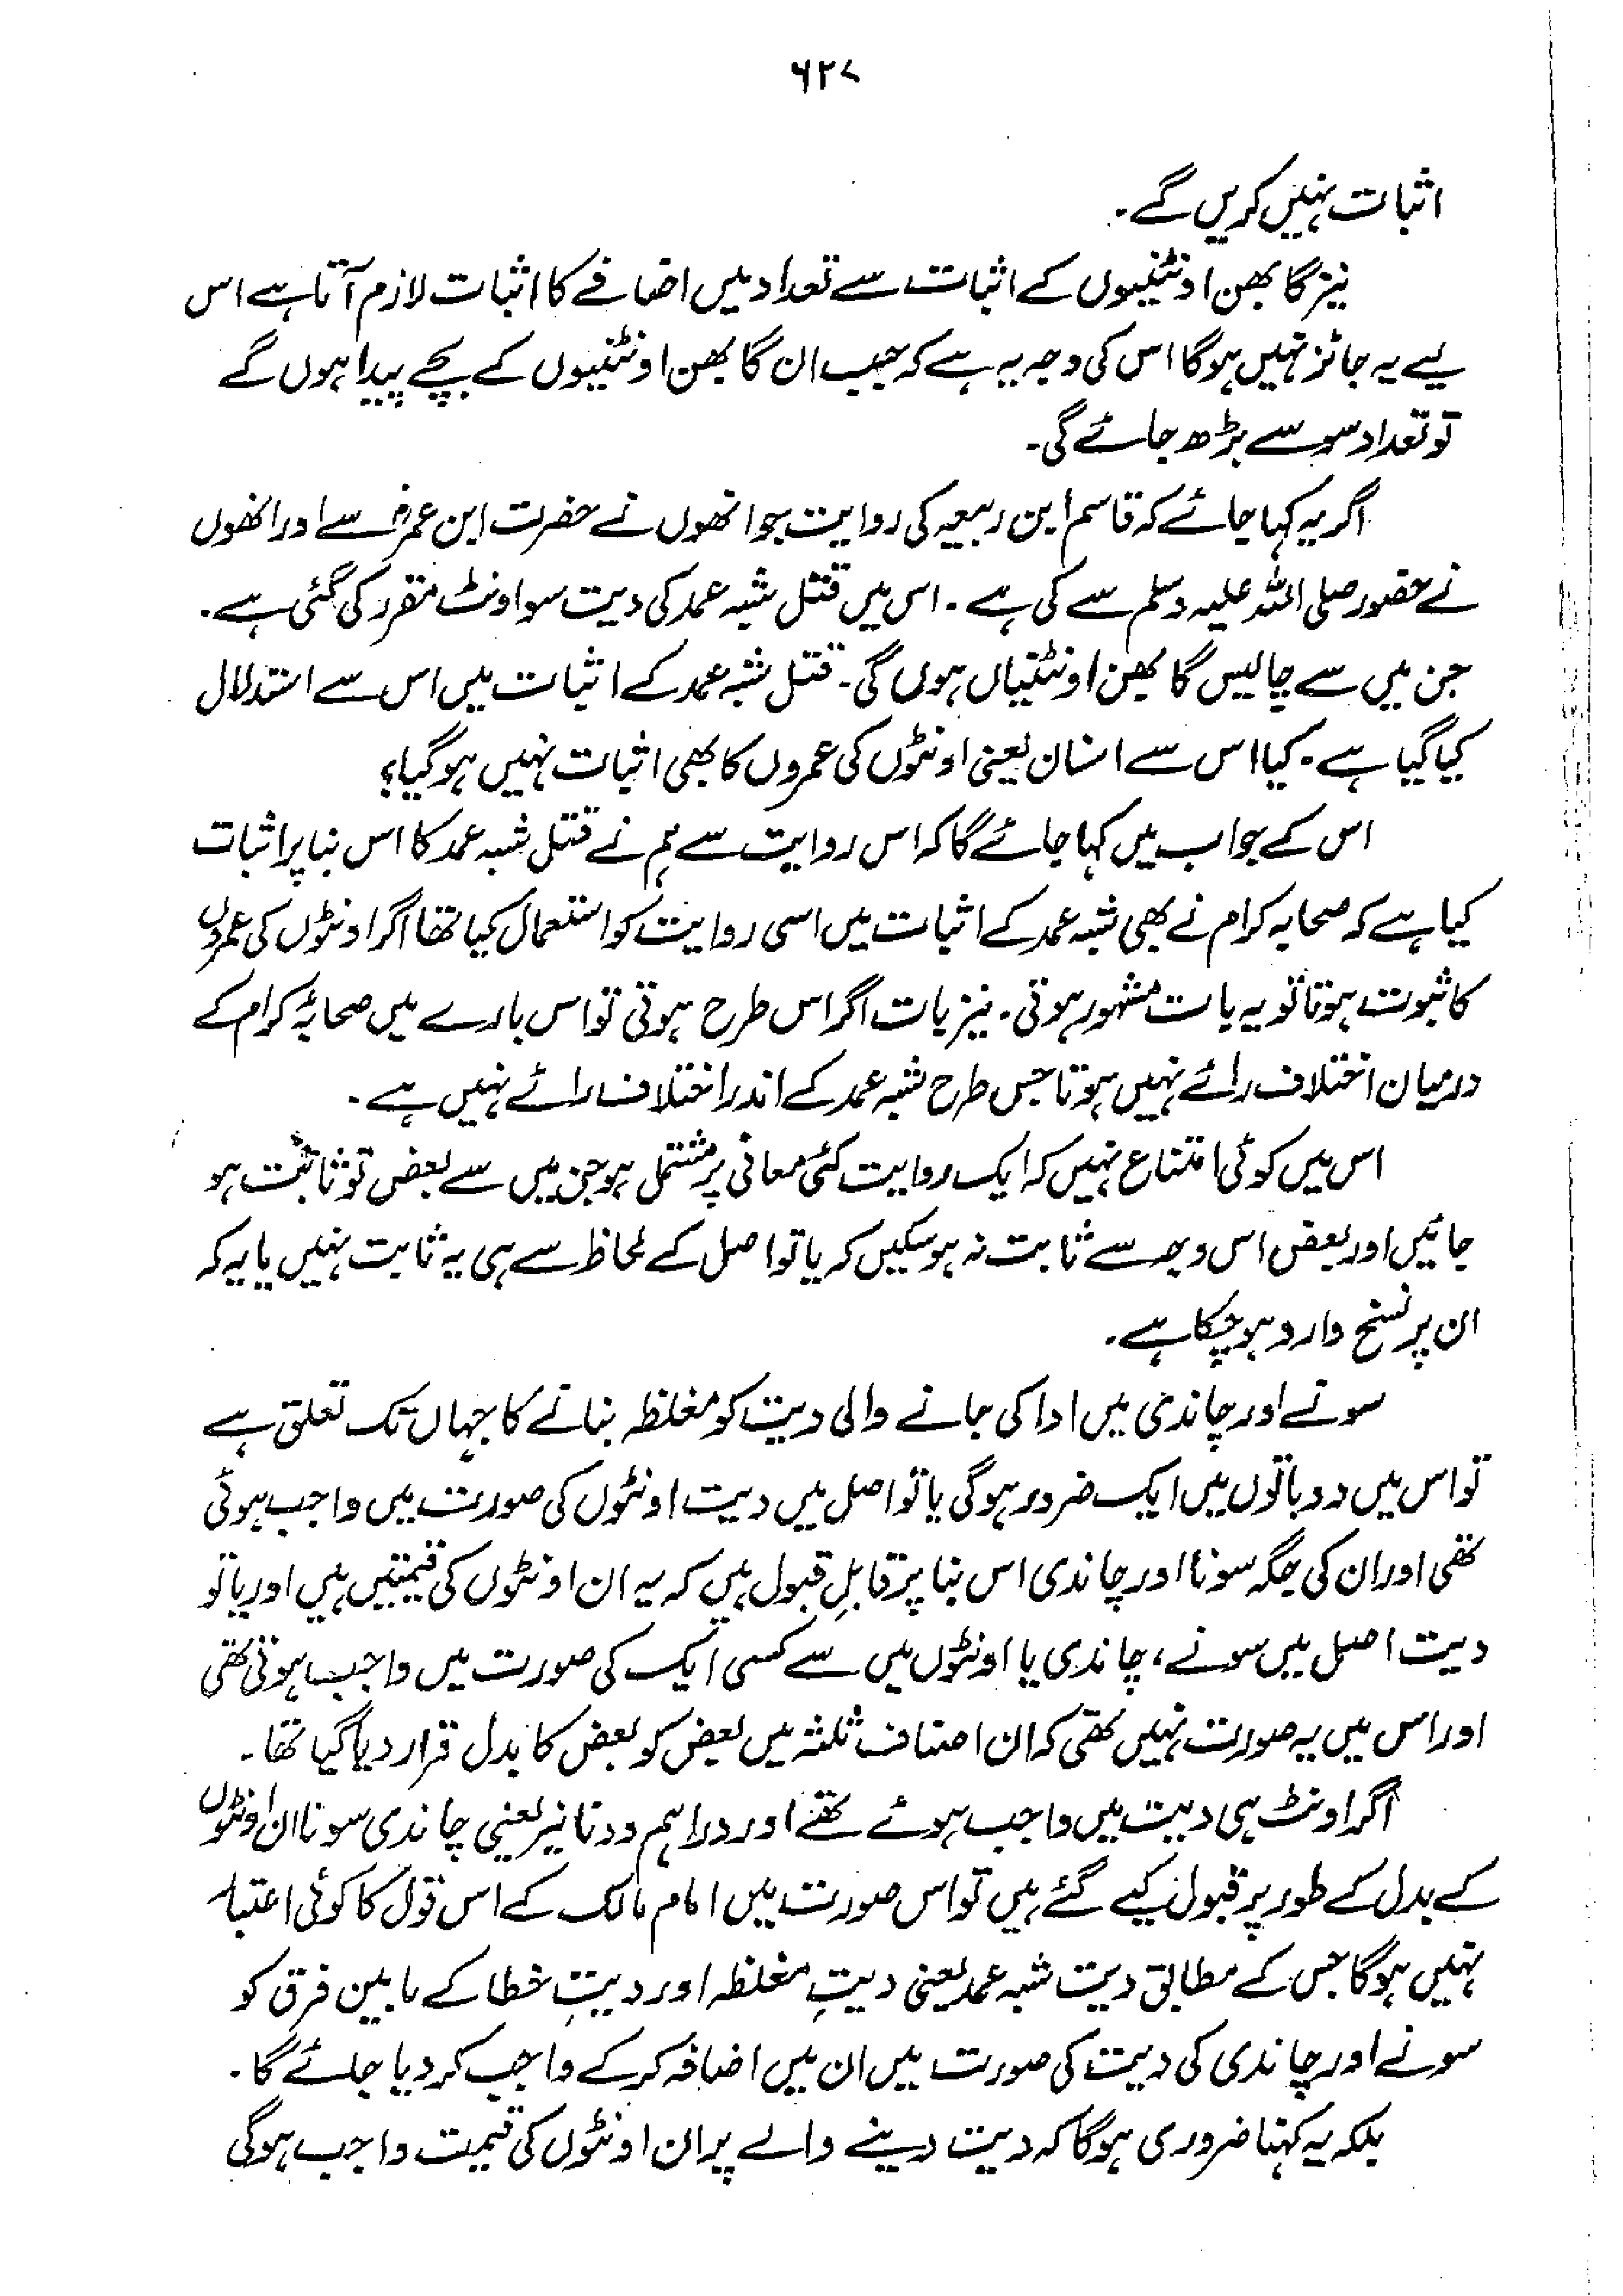 ۶۲۷
اثبات نہیں کریں گے۔
نیز گابھن اونٹنیوں کے اثبات سے تعداد میں اضافے کا اثبات لازم آتا ہے اس
لیے یہ جائز نہیں ہوگا اس کی وجہ یہ ہے کہ جب ان گابھن اونٹنیوں کے بچے پیدا ہوں گے
تو تعداد سو سے بڑھ جائے گی۔
اگر یہ کہا جائے کہ قاسم ابن ربیعہ کی روایت جو انھوں نے حضرت ابن عمرؓ سے اور انھوں
نے حضور صلی اللہ علیہ وسلم سے کی ہے۔ اس میں قتل شبہ عمد کی دیت سو اونٹ مقرر کی گئی ہے۔
جن میں سے چالیس گابھن اونٹنیاں ہوں گی۔ قتل شبہ عمد کے اثبات میں اس سے استدلال
کیا گیا ہے۔ کیا اس سے اسنان یعنی اونٹوں کی عمروں کا بھی اثبات نہیں ہوگیا؟
اس کے جواب میں کہا جائے گا کہ اس روایت سے ہم نے قتل شبہ عمد کا اس بنا پر اثبات
کیا ہے کہ صحابہ کرام نے بھی شبہ عمد کے اثبات میں اسی روایت کو استعمال کیا تھا اگر اونٹوں کی عمروں
کا ثبوت ہوتا تو یہ بات مشہور ہوتی۔ نیز بات اگر اس طرح ہوتی تو اس بارے میں صحابۂ کرام کے
درمیان اختلاف رائے نہیں ہوتا جس طرح شبہ عمد کے اندر اختلاف رائے نہیں ہے۔
اس میں کوئی امتناع نہیں کہ ایک روایت کئی معانی پر مشتمل ہو جن میں سے بعض تو ثابت ہو
جائیں اور بعض اس وجہ سے ثابت نہ ہوسکیں کہ یا تو اصل کے لحاظ سے ہی یہ ثابت نہیں یا یہ کہ
ان پر نسخ وارد ہوچکا ہے۔
سونے اور چاندی میں ادا کی جانے والی دیت کو مغلظہ بنانے کا جہاں تک تعلق ہے
تو اس میں دو باتوں میں ایک ضرور ہوگی یا تو اصل میں دیت اونٹوں کی صورت میں واجب ہوئی
تھی اور ان کی جگہ سونا اور چاندی اس بنا پر قابلِ قبول ہیں کہ یہ ان اونٹوں کی قیمتیں ہیں اور یا تو
دیت اصل میں سونے، چاندی یا اونٹوں میں سے کسی ایک کی صورت میں واجب ہوتی تھی
اور اس میں یہ صورت نہیں تھی کہ ان اصناف ثلثہ میں بعض کو بعض کا بدل قرار دیا گیا تھا۔
اگر اونٹ ہی دیت میں واجب ہوئے تھے اور دراہم و دنانیر یعنی چاندی سونا ان اونٹوں
کے بدل کے طور پر قبول کیے گئے ہیں تو اس صورت میں امام مالک کے اس قول کا کوئی اعتبار
نہیں ہوگا جس کے مطابق دیت شبہ عمد یعنی دیتِ مغلظہ اور دیتِ خطا کے مابین فرق کو
سونے اور چاندی کی دیت کی صورت میں ان میں اضافہ کرکے واجب کردیا جائے گا۔
بلکہ یہ کہنا ضروری ہوگا کہ دیت دینے والے پر ان اونٹوں کی قیمت واجب ہوگی